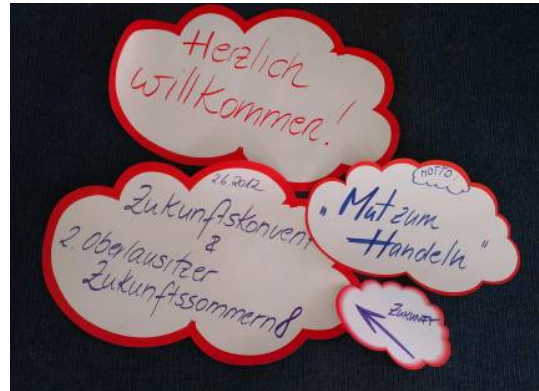 Herzlich
willkommen!
2.6.2012
Zukunftskonvent
&
2. Oberlausitzer
Zukunftssommern8
MOTTO:
"Mut zum
Handeln"
ZUKUNFT